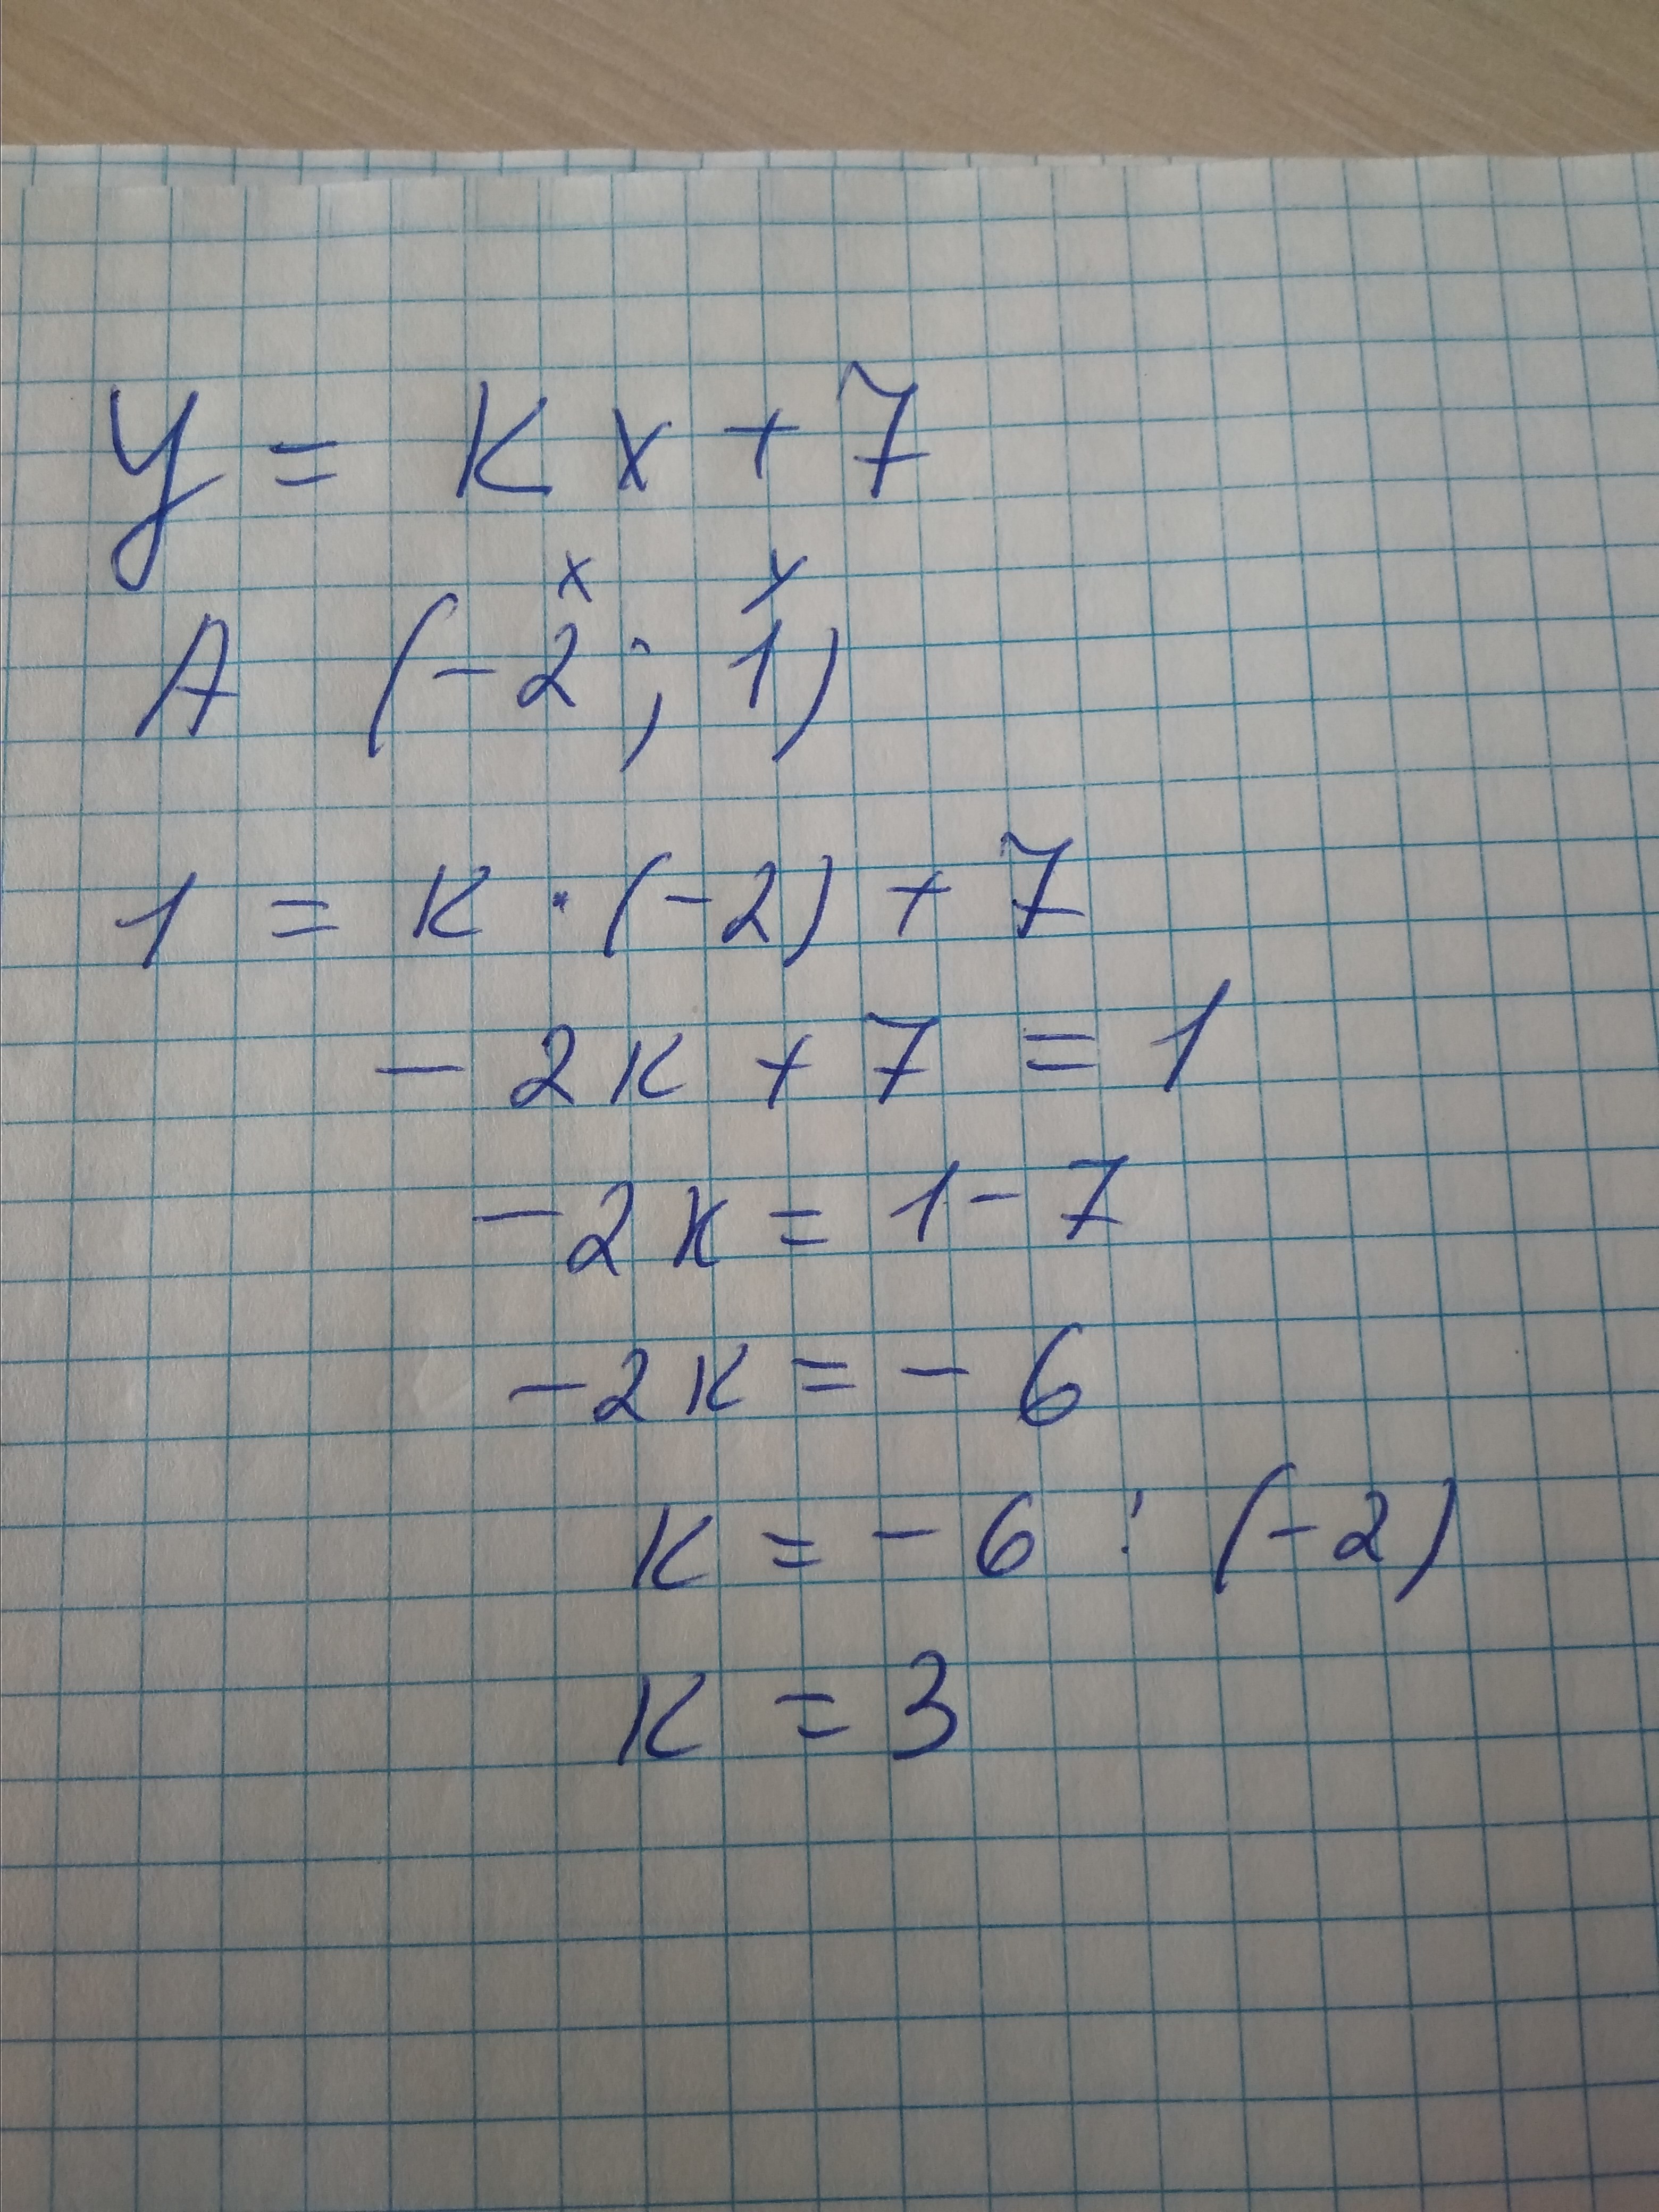 y = kx + 7
x y
A (-2; 1)
1 = k · (-2) + 7
- 2k + 7 = 1
-2k = 1 - 7
-2k = - 6
k = - 6 : (-2)
k = 3